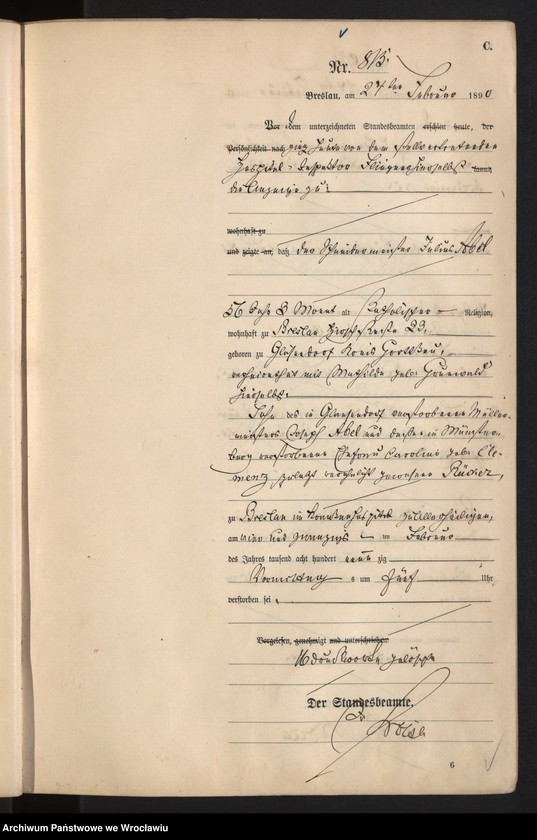 C.
Nr. 815.
Breslau, am 27ten Februar 1890
Vor dem unterzeichneten Standesbeamten erschien heute, der
Persönlichkeit nach ging heute von dem stellvertretenden
Hospital-Inspektor hierselbst kannt,
die Anzeige zu:
wohnhaft zu
und zeigte an, daß der Schneidermeister Julius Abel
56 Jahr 8 Monat alt katholischer Religion,
wohnhaft zu Breslau Hirschstraße 23,
geboren zu Gläsendorf Kreis Grottkau,
verheirathet mit Mathilde geb. Grunwald
hierselbst.
Sohn des in Glaesendorf verstorbenen Müller-
meisters Joseph Abel und dessen in Münster-
berg verstorbenen Ehefrau Carolina geb. Cle-
menz, zuletzt verehelicht gewesenen Rücker,
zu Breslau im Krankenhospital zu Allerheiligen,
am vier und zwanzigsten Februar
des Jahres tausend acht hundert neunzig
Vormittags um fünf Uhr
verstorben sei.
Vorgelesen, genehmigt und unterschrieben
16 Druckworte gelöscht
Der Standesbeamte.
6
Archiwum Państwowe we Wrocławiu